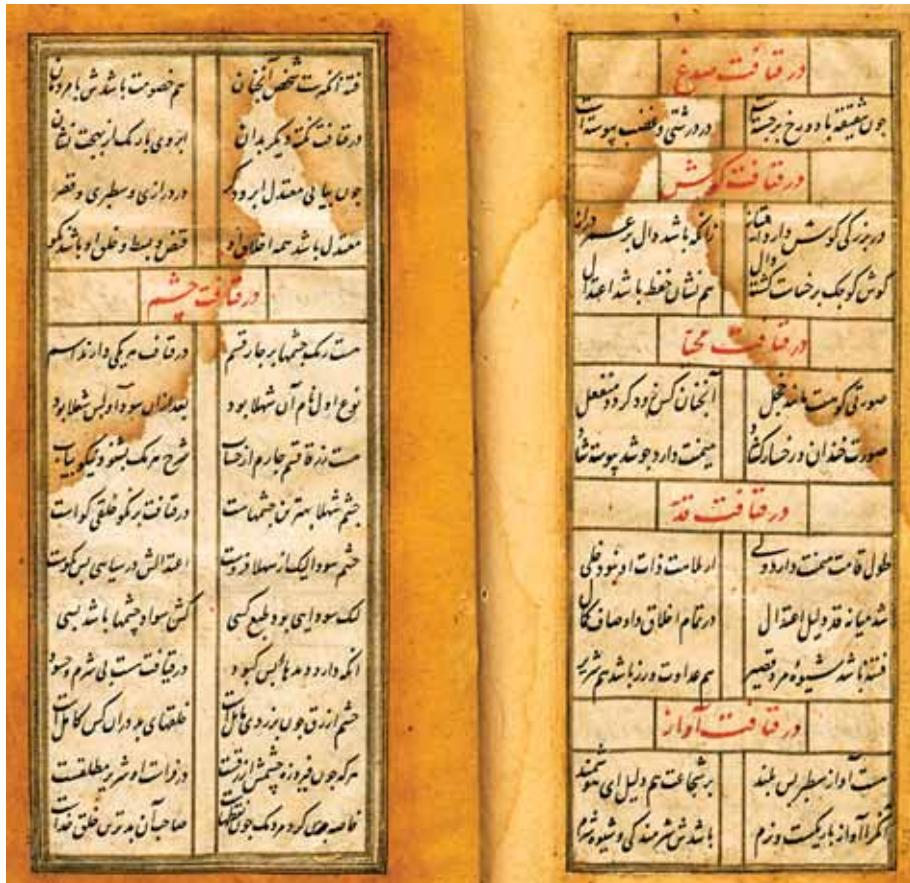 در قیافت صدغ
چون شقیقه با دو رخ برجسته است در درشتی و غضب پیوسته است
در قیافت کوش
در بزرکی کوش دارد زانکه باشد دال بر عمر دراز
کوش کوجک بر خساست کشته دال هم نشان حفظ باشد اعتدال
در قیافت محیا
صورتی کو هست مانند خجل آنجنان کس خود کردد منفعل
صورت خندان و رخسار کشاد میمنت دارد جو شد پیوسته شاد
در قیافت قد
طول قامت میمنت دارد ولی از ملامت ذات او نبود خلی
شد میانه قد دلیل اعتدال در تمام اخلاق و اوصاف کمال
فتنه باشد شیوه مرد قصیر هم عداوت ورز باشد هم شریر
در قیافت آواز
هست آواز سطبر بس بلند بر شجاعت هم دلیل ای هوشمند
آنکرا آواز باریکست و نرم باشدش شرمندکی و شیوه شرم
فتنه انکیزست شخص آنجنان هم خصومت باشدش با مردمان
در قیافت نکته دیکر بدان ابروی باریک از بهجت نشان
جون بیابی معتدل ابرو دکر در درازی و سطبری و قصر
معتدل باشد همه اخلاق او قبض و بسط و خلق او باشد نکو
در قیافت چشم
هست رنک چشمها بر جار قسم در قیافت هر یکی دارند اسم
نوع اول نام آن شهلا بود بعد ازان سودا و بس شعلا بود
هست زرقا قسم جارم از حساب شرح هر یک بشنو و نیکو بیاب
چشم شهلا بهترین چشمهاست در قیافت بر نکو خلقی کواست
چشم سودا لیک از شهلا فزوست اعتدالش در سیاهی بس نکوست
لیک سودایی بود طبع کسی کش سواد چشمها باشد بسی
آنکه دارد دیدها بس کبود در قیافت هست بی شرم و حسود
چشم ازرق جون بزردی مایلست خلقهای بد دران کس کاملست
هرکه جون فیروزه چشمش ازرقست در ذات او شریر مطلقست
خاصه کرد مردمک جون نقطهاست صاحب آن بدترین خلق خداست